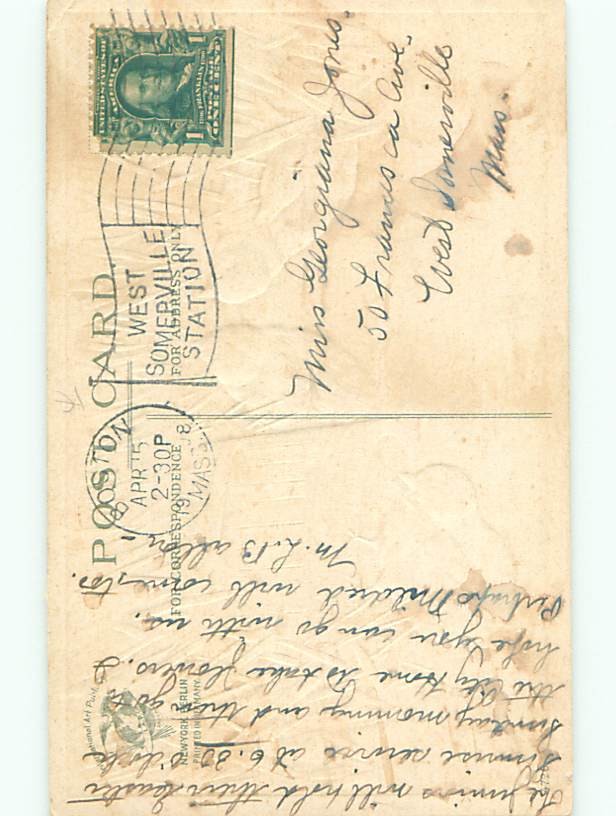 POST CARD.
FOR CORRESPONDENCE
FOR ADDRESS ONLY
BOSTON
APR 15
2-30P
1908
MASS.
WEST
SOMERVILLE
STATION
UNITED STATES OF
FRANKLIN
1 ONE CENT 1
Miss Georgiana Jones.
50 Francesca Ave.
West Somerville
Mass.
The juniors will hold their Easter
sunrise service at 6.30 o'clock
Sunday morning and then go to
the City Home to take flowers. I
hope you can go with us.
Perhaps Mildred will come, too.
M. L. Ballon
International Art Publ.
NEW YORK BERLIN
PRINTED IN GERMANY